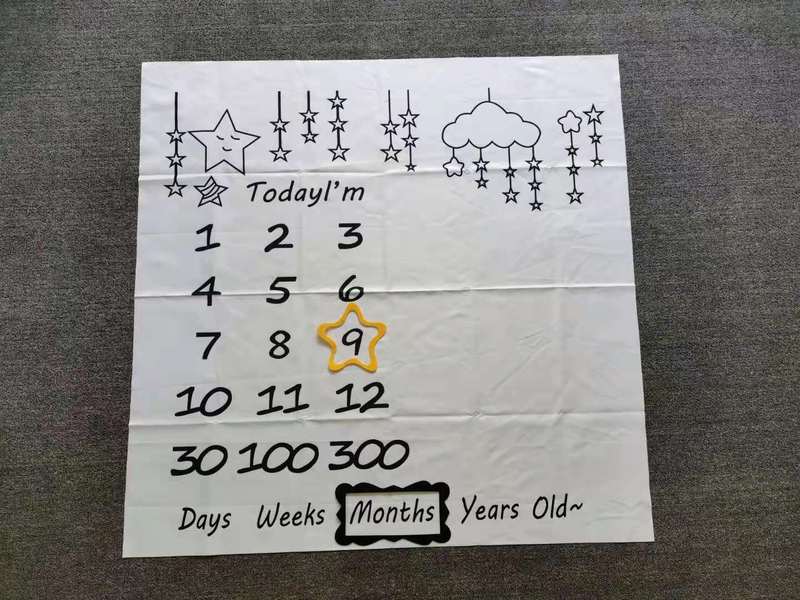 TodayI'm
1 2 3
4 5 6
7 8 9
10 11 12
30 100 300
Days Weeks Months Years Old~